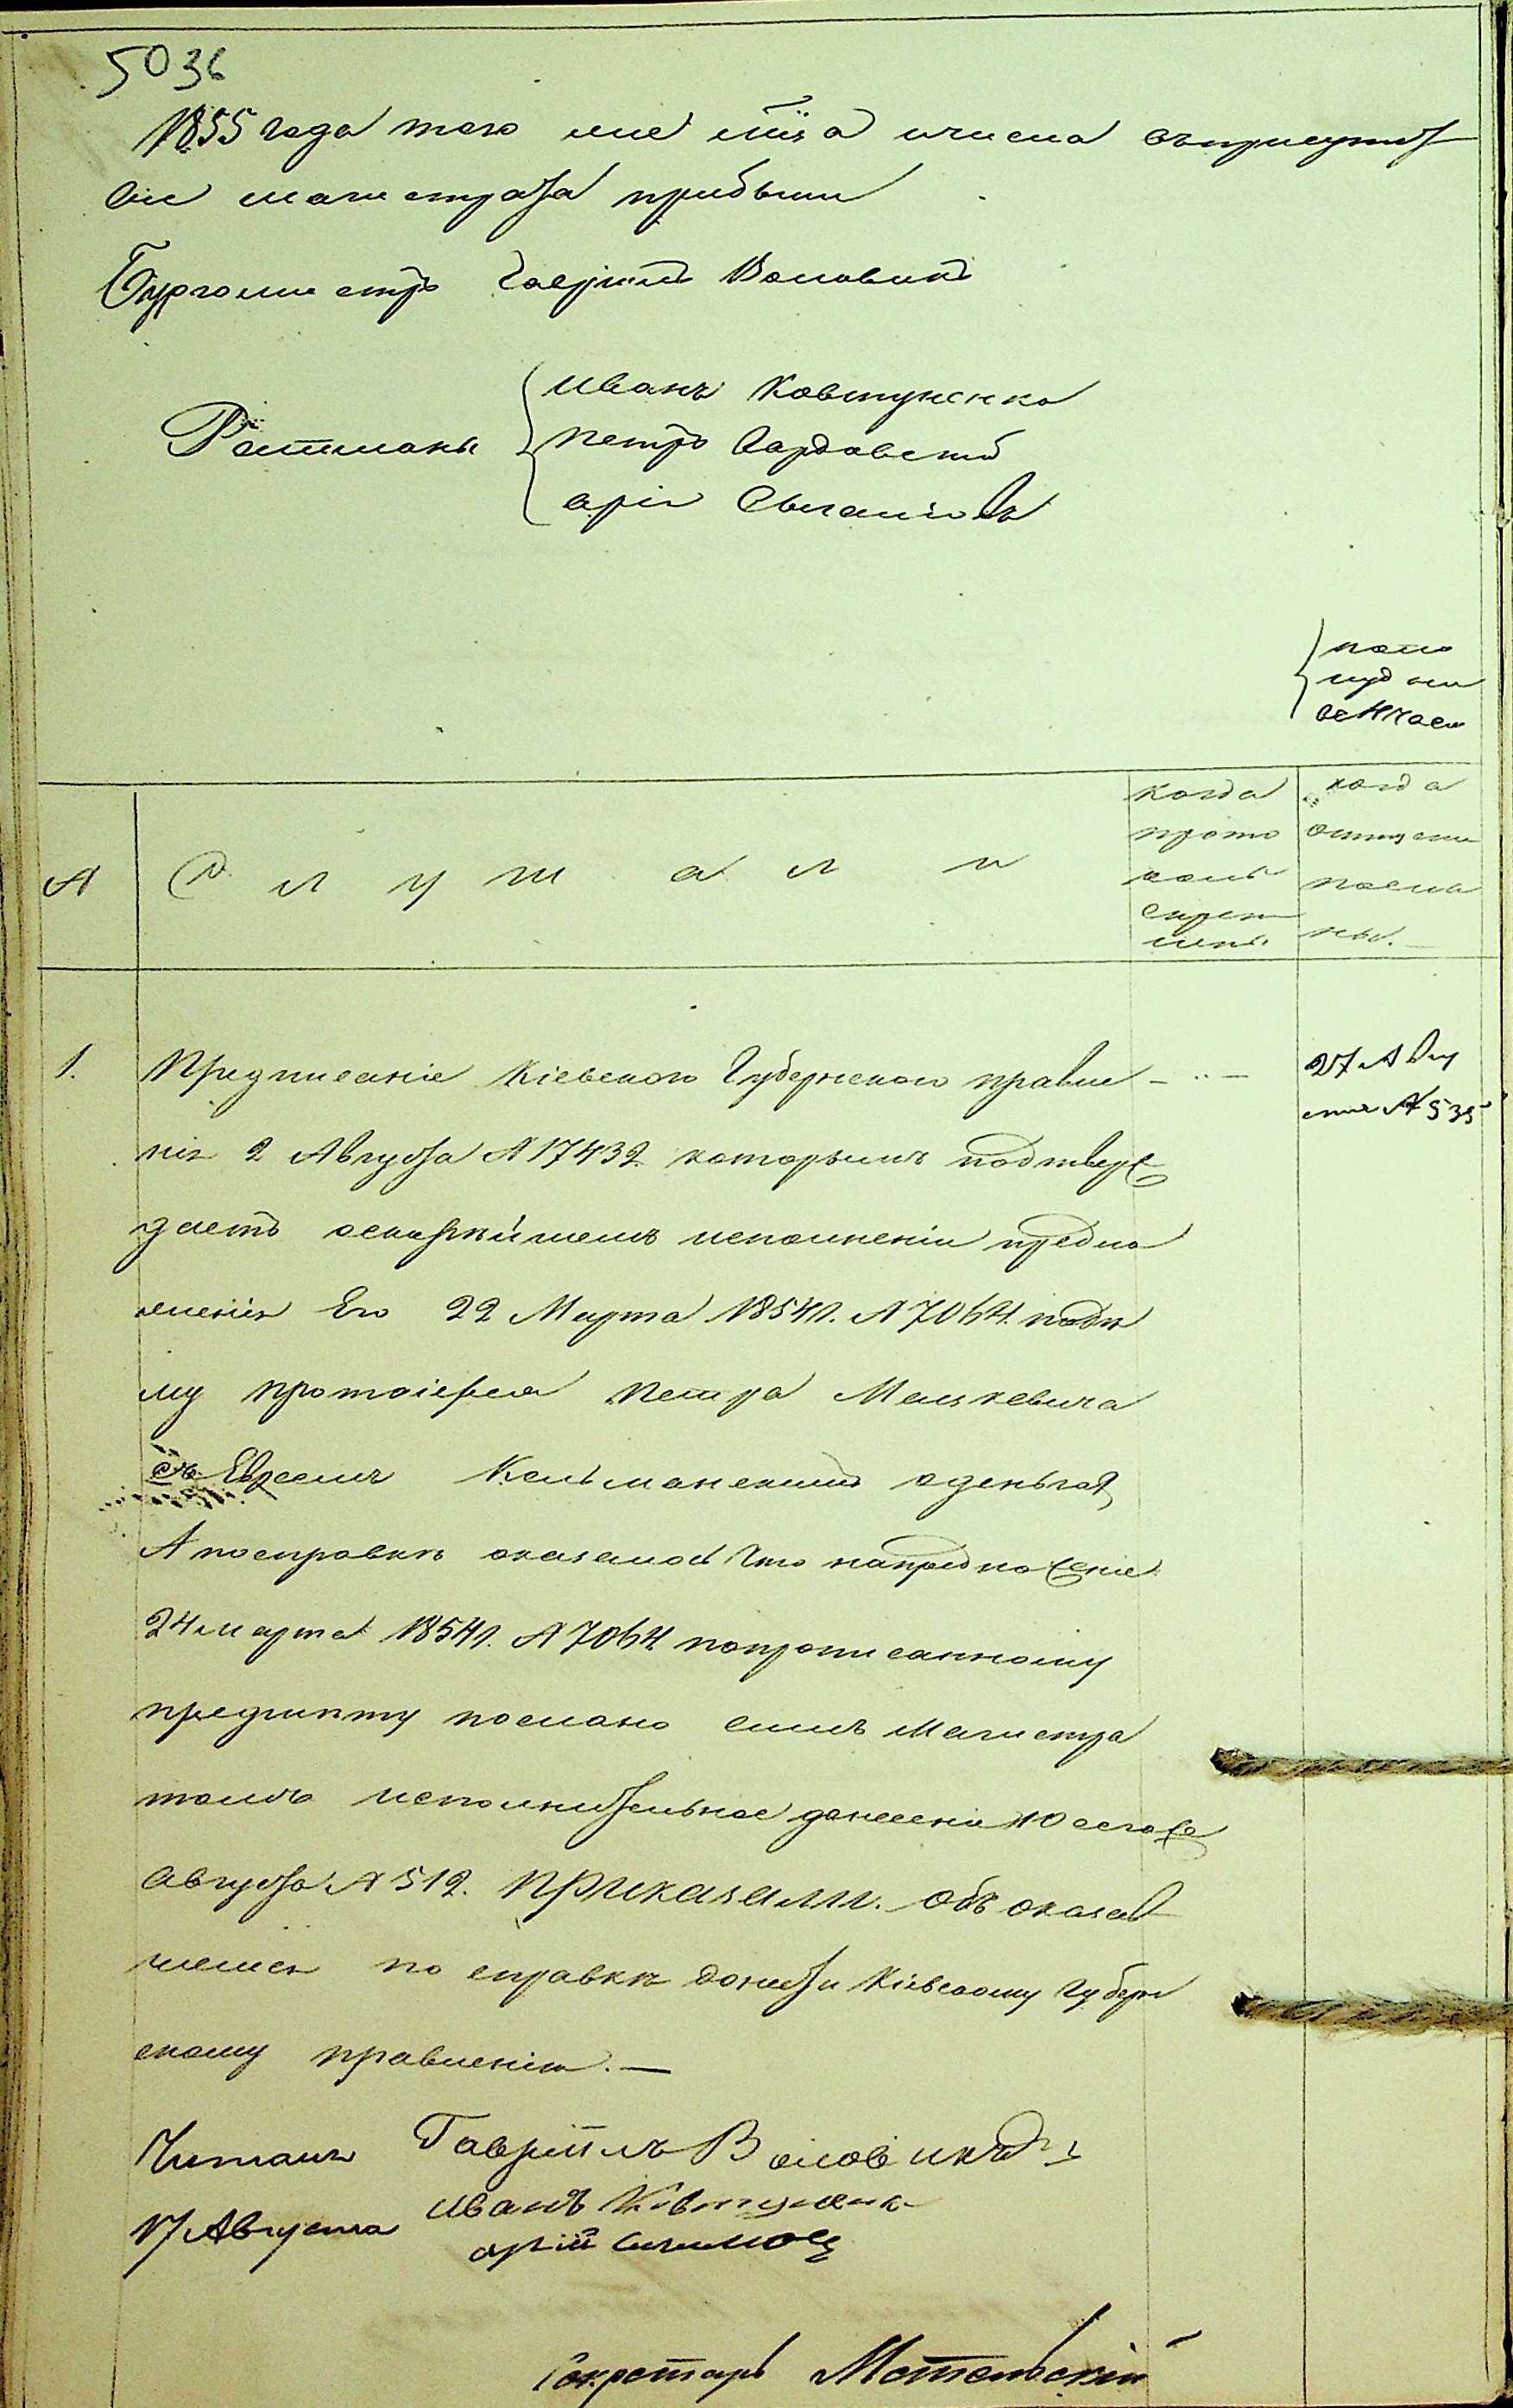 5036
1855 года того же м̃ца и числа въ присутст
віи магистрата прибыли
Бургомистръ Гавріилъ Воловикъ
Ратманы
Иванъ Ковтуненко
Петръ
Арій
по
въ 11 часа
№
С л у ш а л и
когда
прото
колъ
скреп
ленъ
когда
отпущены
посыл
ки.
1.
Предписаніе Кіевскаго Губернскаго правле
нія 2 Августа № 17432 которымъ подтверж
даетъ о скорѣйшемъ исполненіи предло
женія Его 22 Марта 1854 г. № 7064 по дѣ
лу протоіерея Петра
съ Евреемъ Кельманскимъ о деньгах
А по справкѣ оказалось что на предложеніе
24 марта 1854 г. № 7064 по прописанному
предмѣту послано симъ Магистра
томъ исполнительное донесеніе 10 сего же
Августа № 512. Приказали. Объ оказав
шемся по справкѣ донести Кіевскому Губерн
скому правленію. —
27 Авгу
ста № 535
Читалъ
17 Августа
Гавріилъ Воловикъ
Иванъ Ковтуненко
Арій
Секретарь